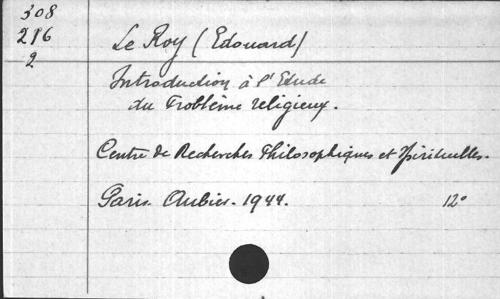 308
216
2
Le Roy (Edouard)
Introduction à l'Etude
du Problème religieux.
Centre de Recherches Philosophiques et Spirituelles.
Paris. Aubier. 1944. 12°